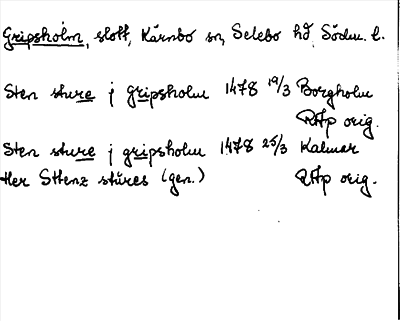 Gripsholm, slott, Kärnbo sn, Selebo hd, Södm. l.
Sten sture j gripsholm 1478 19/3 Borgholm
RAp orig.
Sten sture j gripsholm 1478 25/3 Kalmar
Her Sttenz stures (gen.) RAp orig.